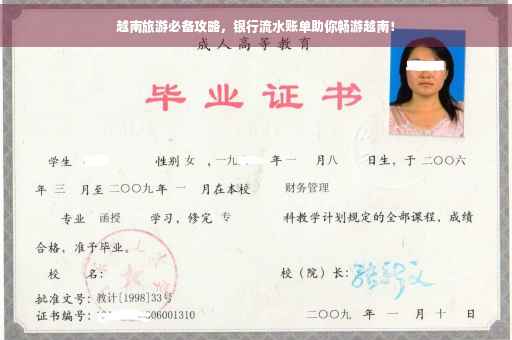 越南旅游必备攻略，银行流水账单助你畅游越南！
成人高等教育
毕业证书
学生 性别 女 ，一九 年 一 月 八 日生，于 二〇〇六
年 三 月至 二〇〇九 年 一 月在本校 财务管理
专业 函授 学习，修完 专 科教学计划规定的全部课程，成绩
合格，准予毕业。
校 名： 校（院）长：
批准文号：教计[1998]33号
证书编号： 06001310 二〇〇九 年 一 月 十 日